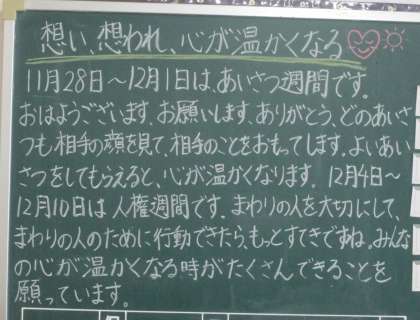 想い、想われ、心が温かくなる
11月28日～12月1日は、あいさつ週間です。
おはようございます。お願いします。ありがとう。どのあいさ
つも相手の顔を見て、相手のことをおもってします。よいあい
さつをしてもらえると、心が温かくなります。12月4日～
12月10日は人権週間です。まわりの人を大切にして、
まわりの人のために行動できたら、もっとすてきですね。みんな
の心が温かくなる時がたくさんできることを
願っています。